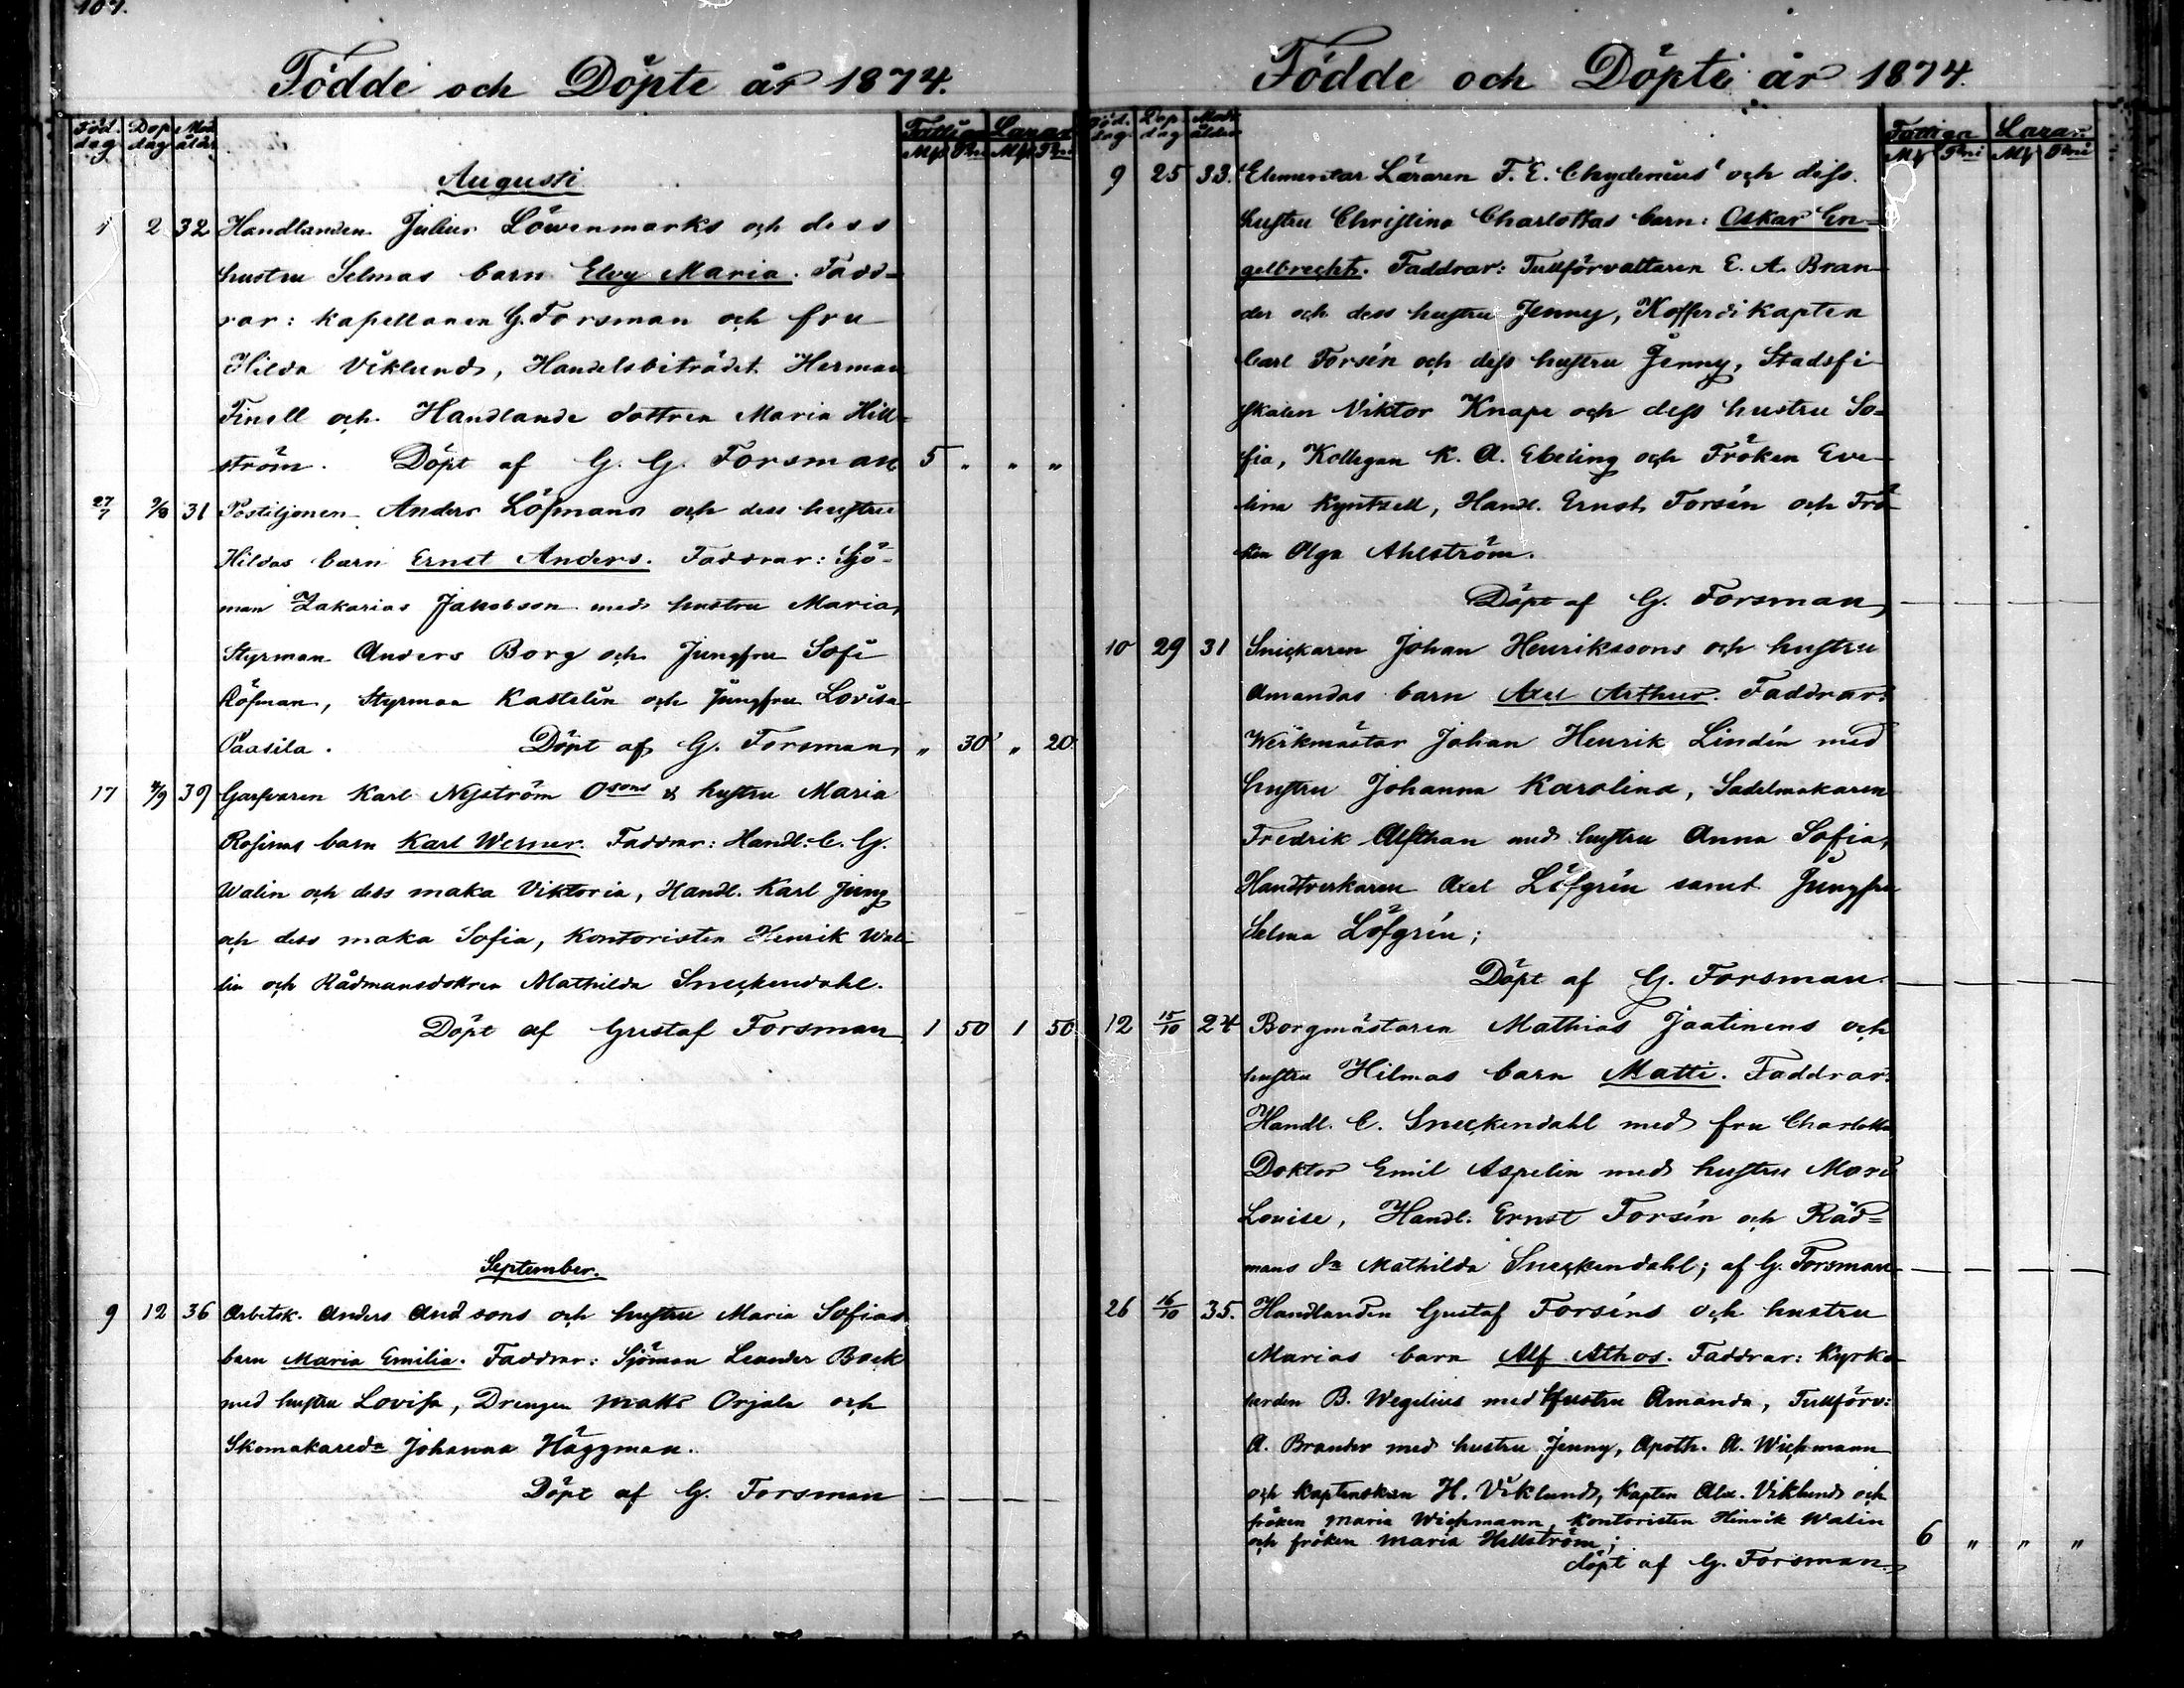 107.
Födde och Döpte år 1874.
Föd. dag Dop dag Mod. ålder Fattiga Lazar.
Mk Pni Mk Pni
Augusti
1 2 32 Handlanden Julius Löwenmarks och dess
hustru Selmas barn Elvy Maria. Fadd-
rar: Kapellanen G. Forsman och fru
Hilda Viklund, Handelsbiträdet Herman
Finell och Handlande dottren Maria Hell-
ström. Döpt af G. G. Forsman 5 „ „ „
27/7 2/8 31 Postiljonen Anders Löfmans och dess hustru
Hildas barn Ernst Anders. Faddrar: Sjö-
man Zakarias Jakobson med hustru Maria,
Styrman Anders Borg och Jungfru Sofi
Löfman, Styrman Kastelin och Jungfru Lovisa
Paasila. Döpt af G. Forsman „ 30 „ 20
17 /9 39 Garfvaren Karl Nyström Osons & hustru Maria
Rosinas barn Karl Werner. Faddrar: Handl. C. G.
Walin och dess maka Viktoria, Handl. Karl Jung
och dess maka Sofia, Kontoristen Henrik Wal-
lin och Rådmansdottren Mathilda Sneckendahl.
Döpt af Gustaf Forsman 1 50 1 50
September.
9 12 36 Arbetsk. Anders Andsons och hustru Maria Sofias
barn Maria Emilia. Faddrar: Sjöman Leander Back
med hustru Lovisa, Drengen Matts Orjala och
Skomakareda Johanna Häggman.
Döpt af G. Forsman — — — —
Födde och Döpte år 1874.
Föd. dag Dop dag Mod. ålder Fattiga Lazar.
Mk Pni Mk Pni
9 25 33. Elementar Läraren F. E. Chydenius' och dess
hustru Christina Charlottas barn: Oskar En-
gelbrecht. Faddrar: Tullförvaltaren E. A. Bran-
der och dess hustru Jenny, Kofferdikapten
Carl Forsén och dess hustru Jenny, Stadsfi-
skalen Viktor Knape och dess hustru So-
fia, Kollegan K. A. Ebeling och Fröken Eve-
lina Kyntzell, Handl. Ernst Forsén och Frö-
ken Olga Ahlström.
Döpt af G. Forsman — — — —
10 29 31 Snickaren Johan Henrikssons och hustru
Amandas barn Axel Arthur. Faddrar:
Werkmästar Johan Henrik Lindén med
hustru Johanna Karolina, Sadelmakaren
Fredrik Alfthan med hustru Anna Sofia,
Handtverkaren Axel Löfgrén samt Jungfru
Selma Löfgrén;
Döpt af G. Forsman — — — —
12 15/10 24 Borgmästaren Mathias Jaatinens och
hustru Hilmas barn Matti. Faddrar:
Handl. C. Sneckendahl med fru Charlotta,
Doktor Emil Aspelin med hustru Mari
Louise, Handl. Ernst Forsén och Råd-
mans da Mathilda Sneckendahl; af G. Forsman — — — —
26 16/10 35. Handlanden Gustaf Forséns och hustru
Marias barn Alf Athos. Faddrar: Kyrko-
herden B. Wegelius med hustru Amanda, Tullförv:
A. Brander med hustru Jenny, Apoth. A. Wichmann
och Kaptenskan H. Viklund, Kapten Alex. Viklund och
fröken Maria Wichmann, Kontoristen Henrik Walin
och fröken Maria Hellström; 6 „ „ „
döpt af G. Forsman